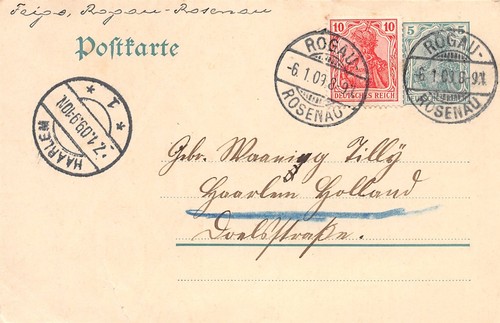 Feige, Rogau-Rosenau
Postkarte
10 10
DEUTSCHES REICH
5 5
ROGAU-
-6.1.09.8-9V.
ROSENAU
ROGAU-
-6.1.09.8-9V.
ROSENAU
HAARLEM
7.1.09.9-10N.
* 1 *
Gebr. Waaning Tilly
Haarlem Holland
Doelsstraße.